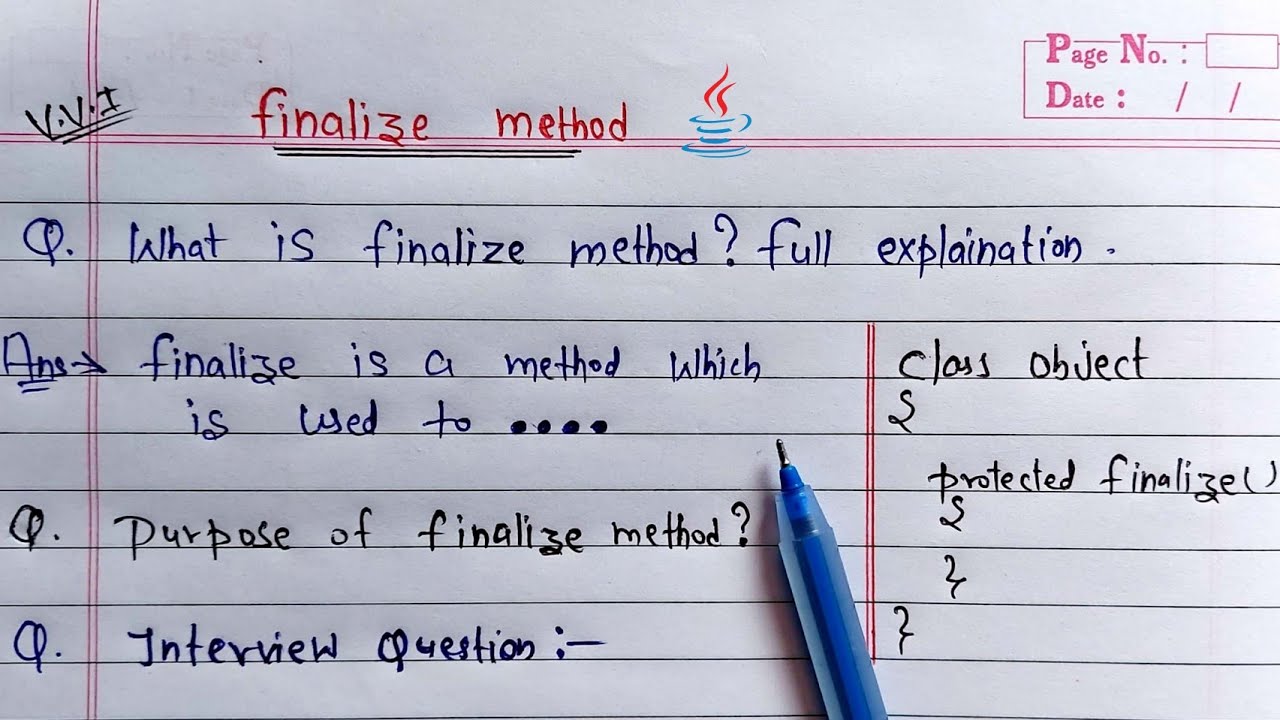 Page No. :
Date : / /
V.V.I
finalize method
Q. What is finalize method? full explaination.
Ans→ finalize is a method which
is used to ....
Q. Purpose of finalize method?
Q. Interview Question :-
class object
{
protected finalize()
{
}
}